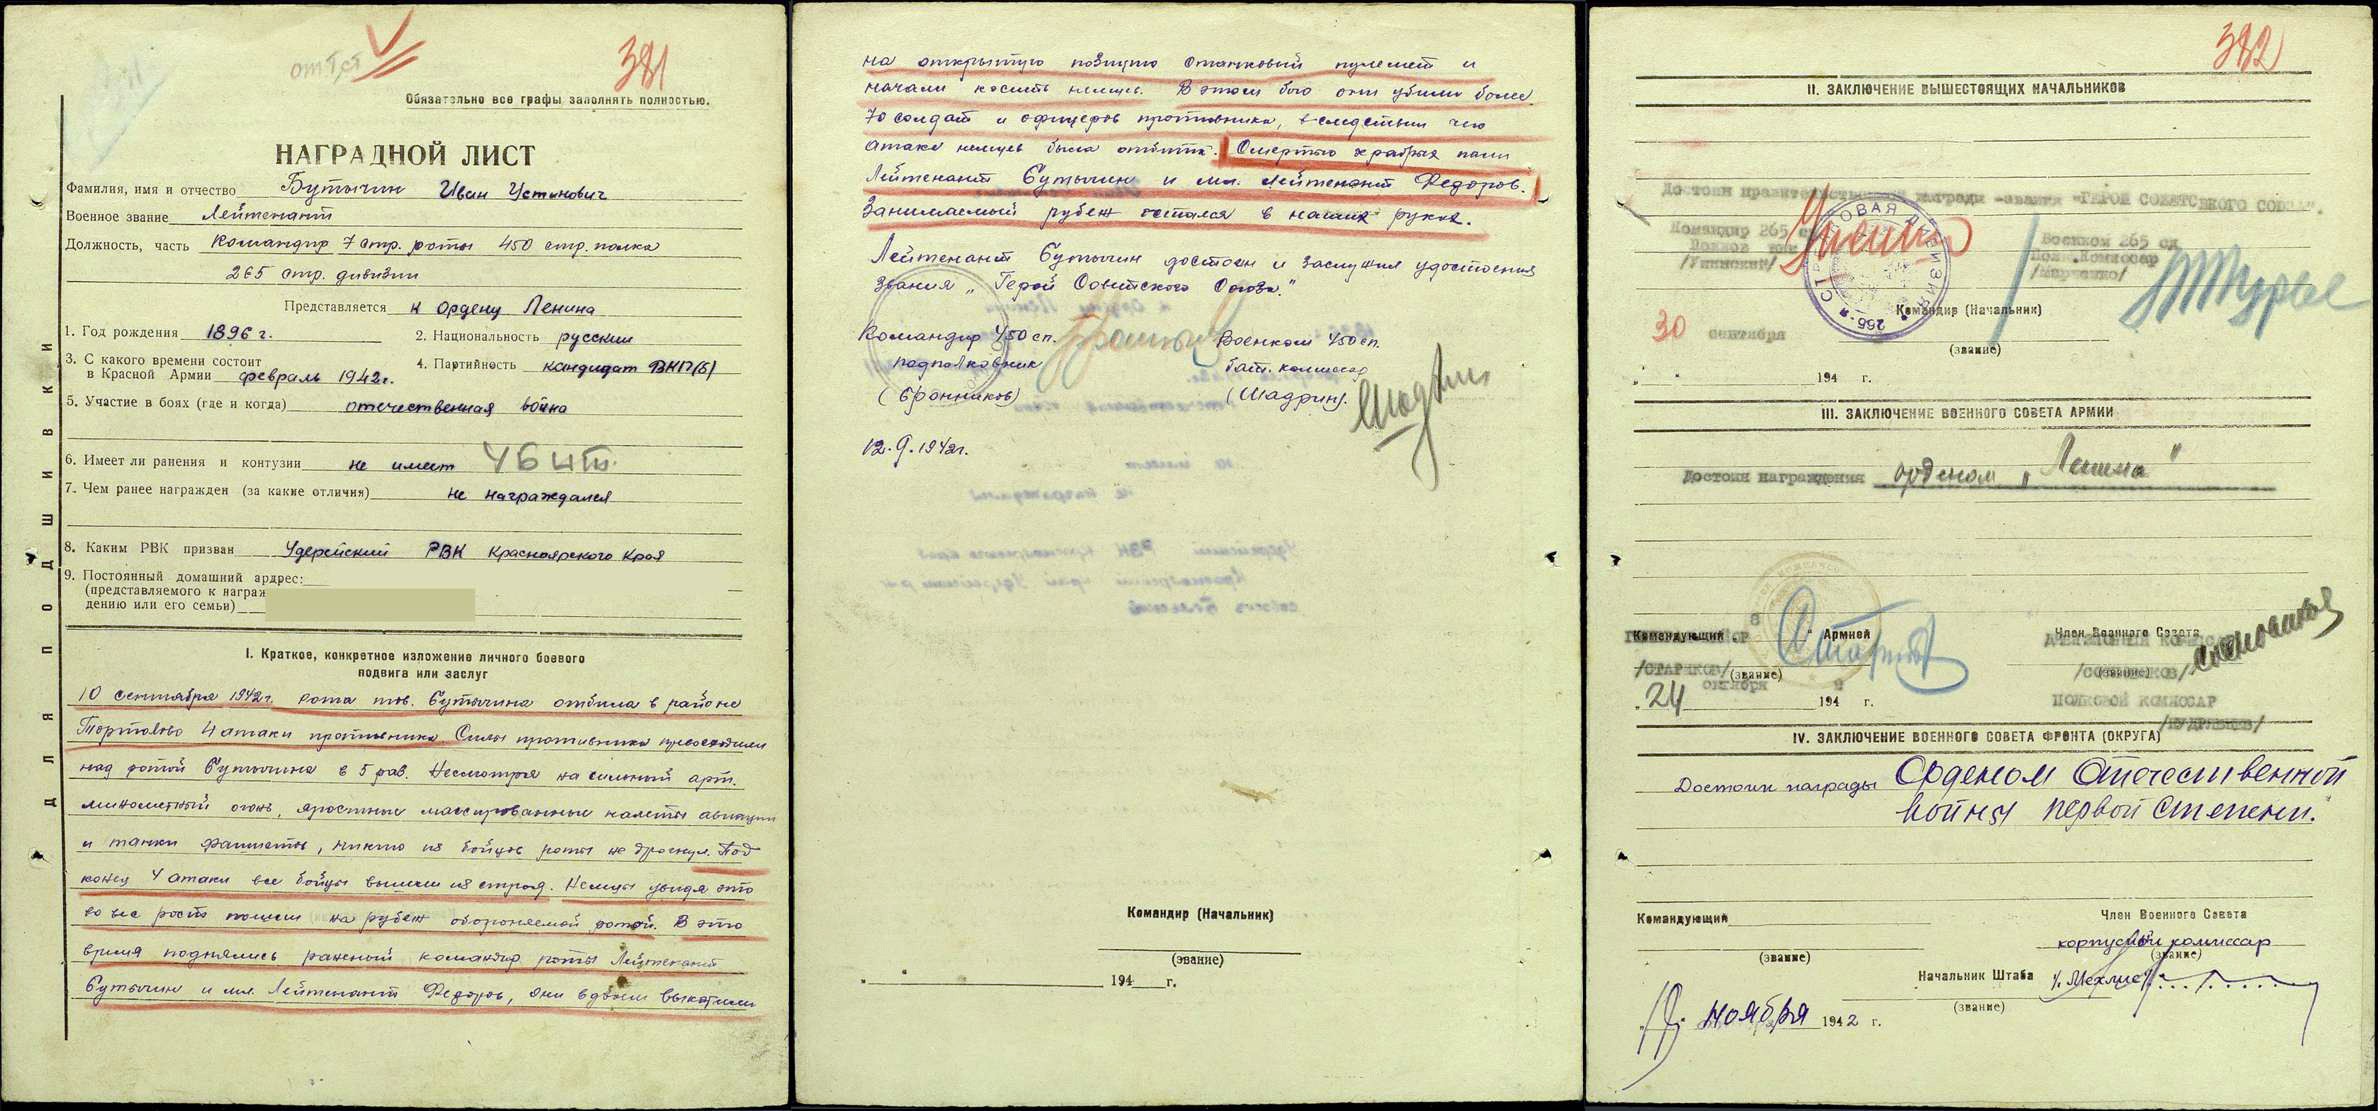 отТст
381
Обязательно все графы заполнять полностью.
НАГРАДНОЙ ЛИСТ
Фамилия, имя и отчество Бутычин Иван Устинович
Военное звание Лейтенант
Должность, часть Командир 7 стр. роты 450 стр. полка
265 стр. дивизии
Представляется к ордену Ленина
1. Год рождения 1896 г. 2. Национальность русский
3. С какого времени состоит
в Красной Армии февраль 1942г. 4. Партийность кандидат ВКП(б)
5. Участие в боях (где и когда) отечественная война
6. Имеет ли ранения и контузии не имеет Убит.
7. Чем ранее награжден (за какие отличия) не награждался
8. Каким РВК призван Удерейский РВК Красноярского Края
9. Постоянный домашний ардрес:
(представляемого к награж
дению или его семьи)
ДЛЯ ПОДШИВКИ
I. Краткое, конкретное изложение личного боевого
подвига или заслуг
10 сентября 1942г. рота тов. Бутычина отбила в районе
Тортолово 4 атаки противника. Силы противника превосходили
над ротой Бутычина в 5 раз. Несмотря на сильный арт.
минометный огонь, яростные массированные налеты авиации
и танки фашистов, никто из бойцов роты не дрогнул. Под
конец 4 атаки все бойцы вышли из строя. Немцы увидя это
во весь рост пошли на рубеж обороняемой ротой. В это
время поднялись раненый командир роты Лейтенант
Бутычин и мл. Лейтенант Федоров, они вдвоем выкатили
на открытую позицию станковый пулемет и
начали косить немцев. В этом бою они убили более
70 солдат и офицеров противника, вследствии чего
атака немцев была отбита. Смертью храбрых пали
Лейтенант Бутычин и мл. лейтенант Федоров.
Занимаемый рубеж остался в наших руках.
Лейтенант Бутычин достоин и заслужил удостоения
звания „Герой Советского Союза."
Командир 450 сп. Военком 450 сп.
подполковник бат. комиссар
(Бронников) (Шадрин).
12.9.1942г.
Командир (Начальник)
(звание)
194 г.
382
II. ЗАКЛЮЧЕНИЕ ВЫШЕСТОЯЩИХ НАЧАЛЬНИКОВ
Достоин правительственной награды -звания "ГЕРОЙ СОВЕТСКОГО СОЮЗА".
Командир 265 сд Военком 265 сд
Полк. Комиссар
/Ушинский/
Командир (Начальник)
30 сентября
(звание)
194 г.
III. ЗАКЛЮЧЕНИЕ ВОЕННОГО СОВЕТА АРМИИ
Достоин награждения орденом „Ленина"
Командующий 8 Армией Член Военного Совета
/СТАРИКОВ/ (звание) (звание)
24 октября 1942 г. ПОЛКОВОЙ КОМИССАР
IV. ЗАКЛЮЧЕНИЕ ВОЕННОГО СОВЕТА ФРОНТА (ОКРУГА)
Достоин награды Орденом Отечественной
войны первой степени.
Командующий Член Военного Совета
корпусной комиссар
(звание) (звание)
Начальник Штаба Мехлис
(звание)
ноября 1942 г.